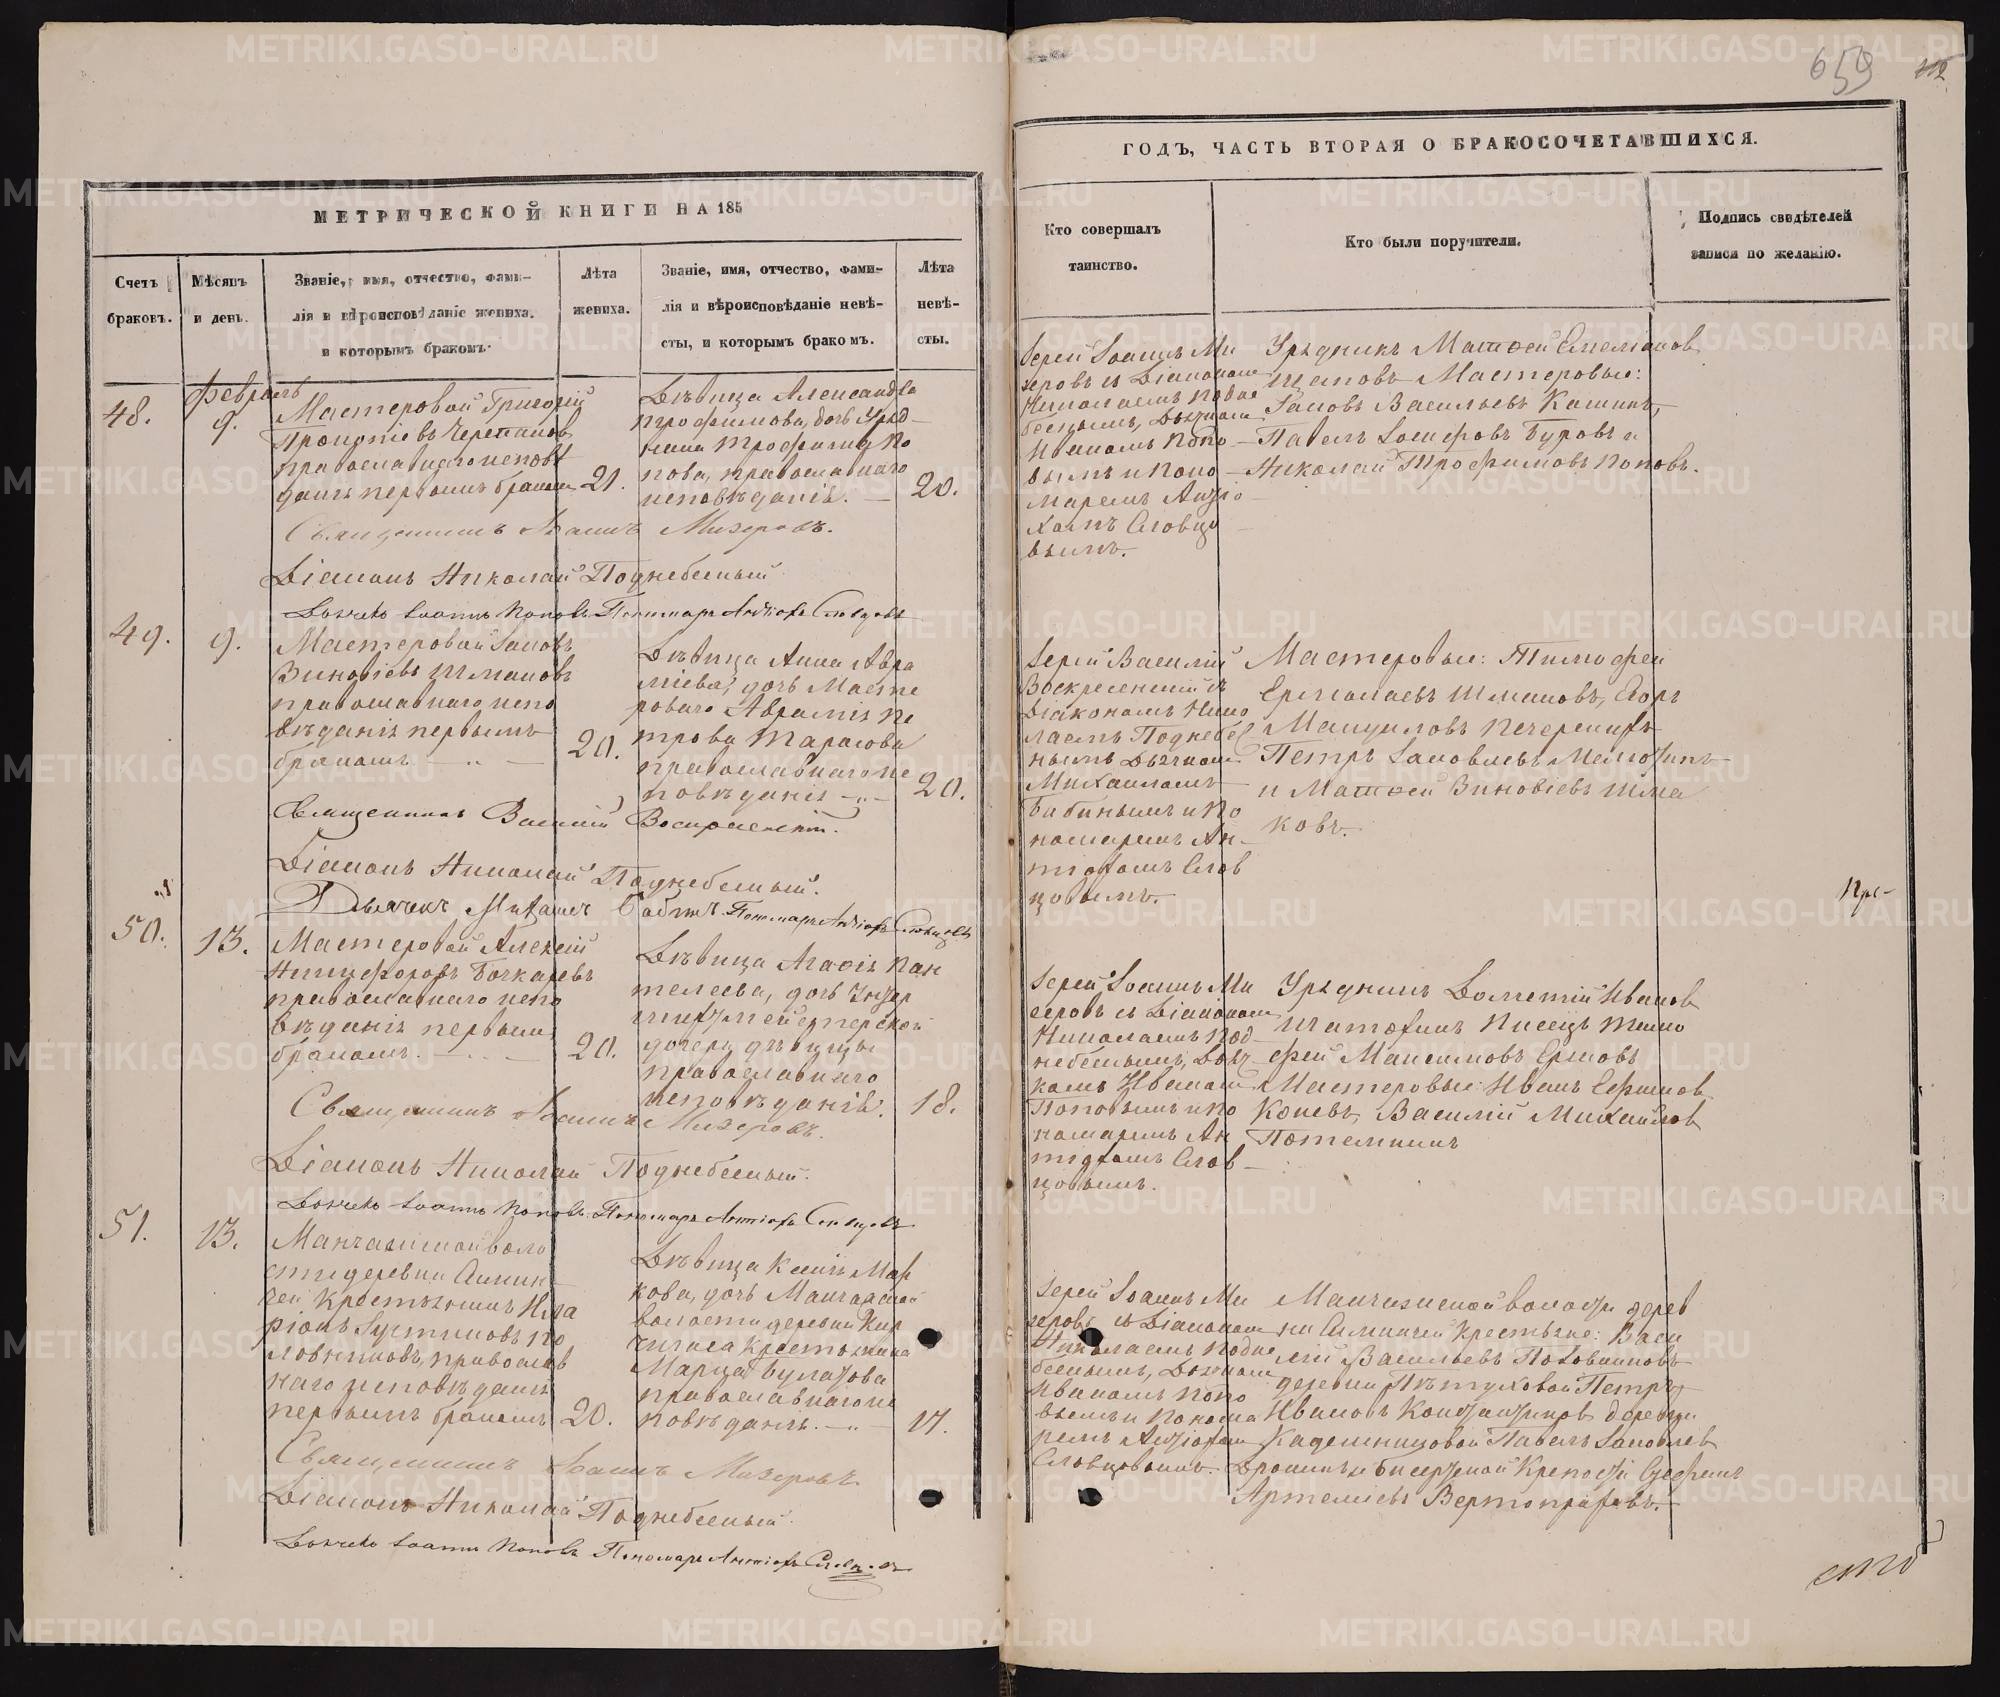 659
МЕТРИЧЕСКОЙ КНИГИ НА 185
Счетъ браковъ.
Мѣсяцъ и день.
Званіе, имя, отчество, фами-
лія и вѣроисповѣданіе жениха.
и которымъ бракомъ.
Лѣта жениха.
Званіе, имя, отчество, фами-
лія и вѣроисповѣданіе невѣ-
сты, и которымъ бракомъ.
Лѣта невѣ-
сты.
48.
Февраль
9.
Мастеровой Григорій
Прокопіевъ Черепановъ
православнаго исповѣ
данія первымъ бракомъ
21.
Дѣвица Александра
Трофимова, дочь Уряд-
ника Трофима По
пова, православнаго
исповѣданія.
20.
Священникъ Іоаннъ Мизеровъ.
Діаконъ Николай Поднебесный
Дьячекъ Іоаннъ Поповъ Пономарь Антіохъ Словцовъ
49.
9.
Мастеровой Іаковъ
Зиновіевъ Шмаковъ
православнаго испо
вѣданія первымъ
бракомъ
20.
Дѣвица Анна Авра
міева, дочь Масте
роваго Аврамія Пе
трова Тарасова
православнаго ис
повѣданія
20.
Священникъ Василій Воскресенскій.
Діаконъ Николай Поднебесный.
Дьячекъ Михаилъ Бабинъ Пономарь Антіохъ Словцовъ
50.
13.
Мастеровой Алексій
Никифоровъ Бочкаревъ
православнаго испо
вѣданія первымъ
бракомъ.
20.
Дѣвица Агафія Пан
телеева, дочь Унтер
шихтмейстерской
дочери дѣвицы
православнаго
исповѣданія.
18.
Священникъ Іоаннъ Мизеровъ.
Діаконъ Николай Поднебесный.
Дьячекъ Іоаннъ Поповъ Пономарь Антіохъ Словцовъ
51.
13.
Манчажской воло
сти деревни
Крестьянинъ Ила
ріонъ Іустиновъ По
ловниковъ, православ
наго исповѣданія
первымъ бракомъ
20.
Дѣвица Ксенія Мар
кова, дочь Манчажской
волости деревни Кир
чигаза Крестьянина
Марка Булатова
православнаго ис
повѣданія.
17.
Священникъ Іоаннъ Мизеровъ.
Діаконъ Николай Поднебесный.
Дьячекъ Іоаннъ Поповъ Пономарь Антіохъ Словцовъ
ГОДЪ, ЧАСТЬ ВТОРАЯ О БРАКОСОЧЕТАВШИХСЯ.
Кто совершалъ
таинство.
Кто были поручители.
Подпись свидѣтелей
записи по желанію.
Іерей Іоаннъ Ми
зеровъ съ Діакономъ
Николаемъ Подне
беснымъ, Дьячкомъ
Иваномъ Попо
вымъ и Поно
маремъ Антіо
хомъ Словцо
вымъ.
Урядникъ Матѳей Емельянов
Мастеровые:
Іаковъ Васильевъ Кашинъ,
Павелъ Іосифовъ Буровъ и
Николай Трофимовъ Поповъ.
Іерей Василій
Воскресенскій съ
Діакономъ Нико
лаемъ Поднебес
нымъ Дьячкомъ
Михаиломъ
Бабинымъ и По
номаремъ Ан
тіохомъ Слов
цовымъ.
Мастеровые: Тимофей
Ермолаевъ Шмаковъ, Егоръ
Петръ Іаковлевъ
и Матѳей Зиновіевъ Шма
ковъ.
Іерей Іоаннъ Ми
зеровъ съ Діакономъ
Николаемъ Под
небеснымъ, Дьяч
комъ Иваномъ
Поповымъ и По
номаремъ Ан
тіохомъ Слов
цовымъ.
Урядникъ Дометій Иванов
Писецъ Тимо
фей Максимовъ Ершовъ
Мастеровые: Иванъ Ефимов
Коневъ, Василій Михайлов
Потеминъ
Іерей Іоаннъ Ми
зеровъ съ Діакономъ
Николаемъ Подне
беснымъ, Дьячкомъ
Иваномъ Попо
вымъ и Понома
ремъ Антіохомъ
Словцовымъ.
Манчажской волости дерев
ни Крестьяне: Васи
лій Васильевъ Половниковъ
деревни Пѣтуховой Петръ
Ивановъ деревни
Павелъ Іаковлев
и Бисертской Крепости
Артеміевъ Вертопраховъ.
METRIKI.GASO-URAL.RU